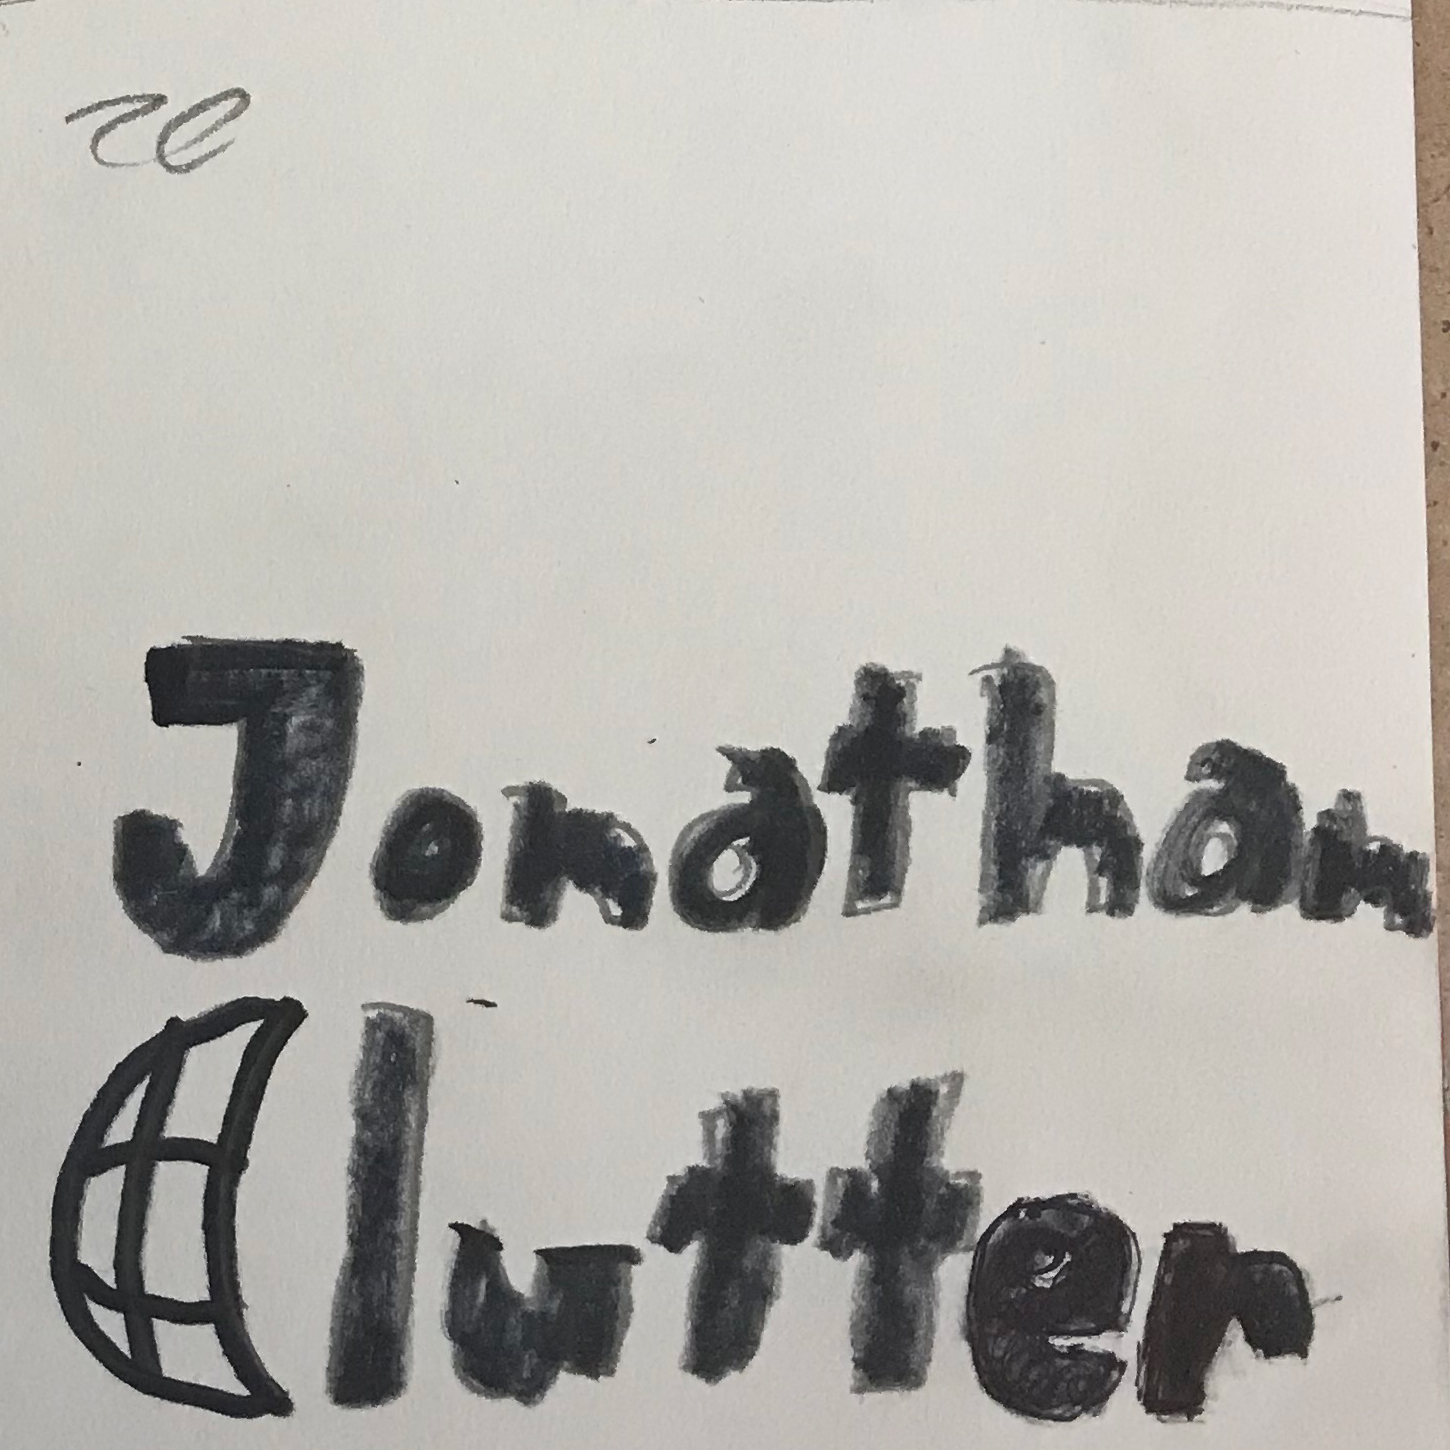 Jonathan
Clutter